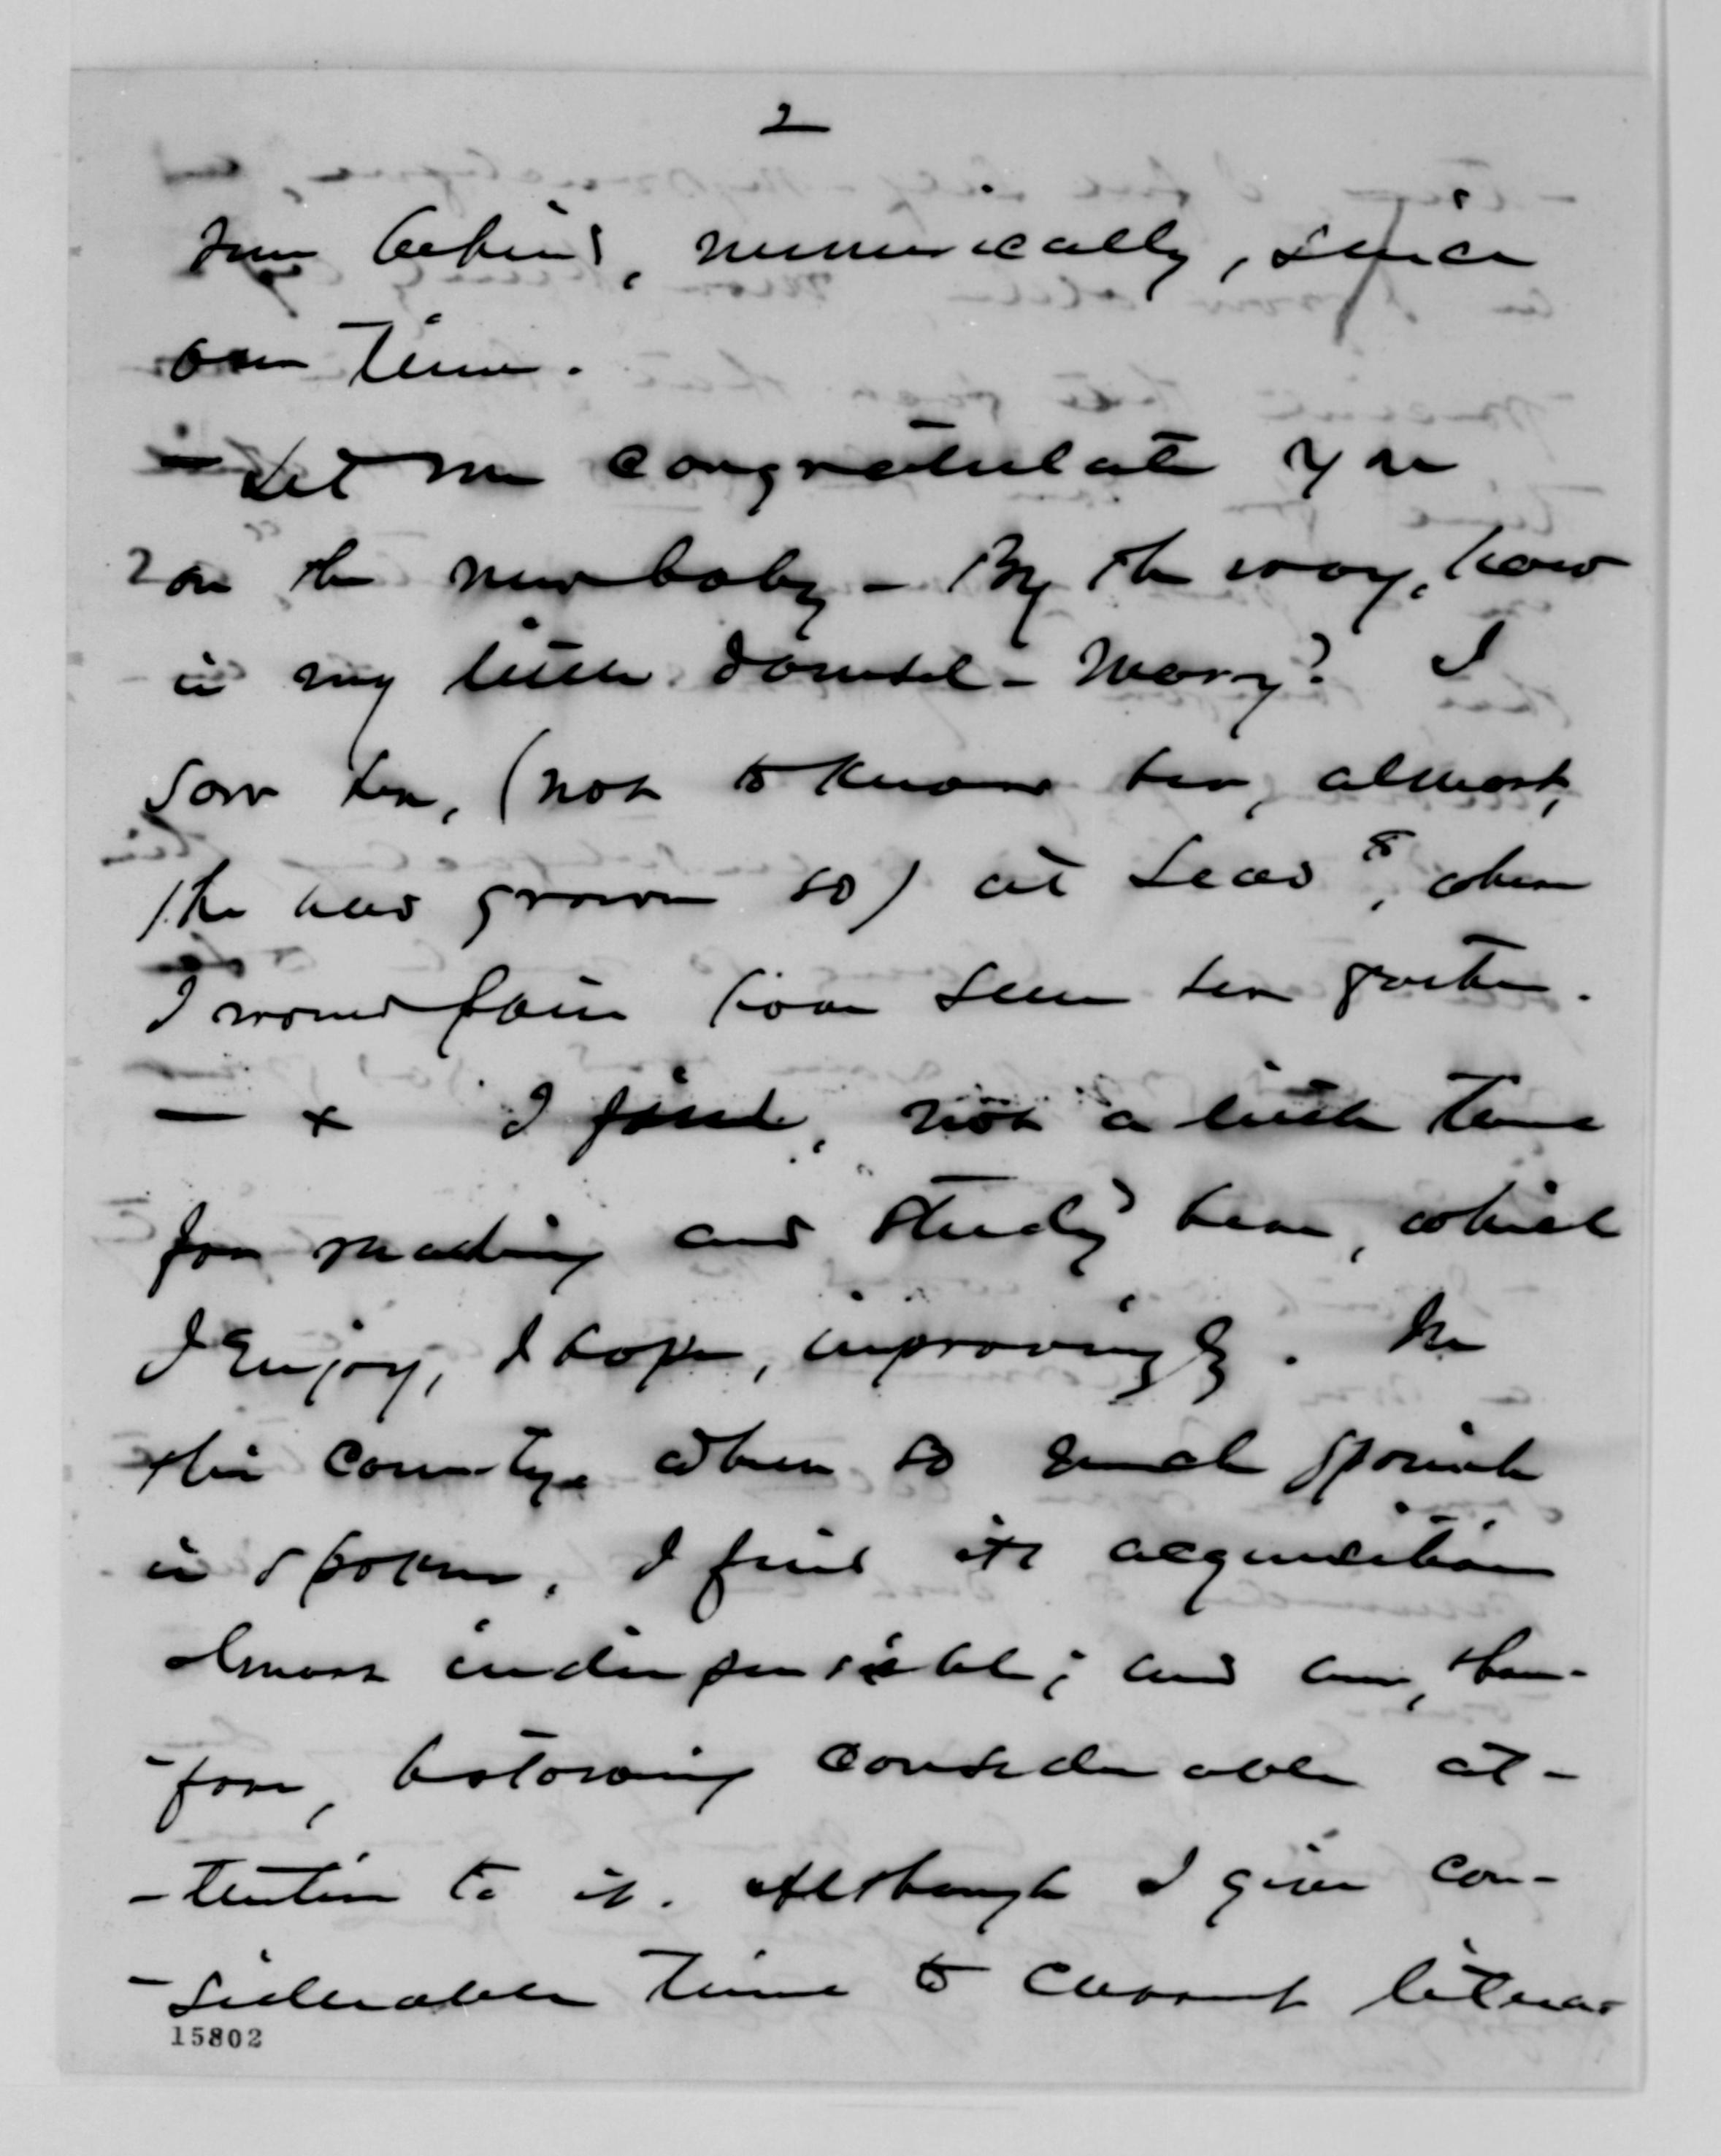 2
behind, numerically, since
our time.
- Let me congratulate you
on the new baby - By the way, how
is my little damsel - Mary? I
saw her, (not to know her, almost,
she had grown so) at Lead, where
I would fain have seen her father.
- x I find, not a little time
for reading and study here, which
I enjoy, I hope, improvingly. In
this country where so much Spanish
is spoken, I find its acquisition
almost indispensable; and am, there-
-fore, bestowing considerable at-
-tention to it. Although I give con-
-siderable time to current litera-
15802